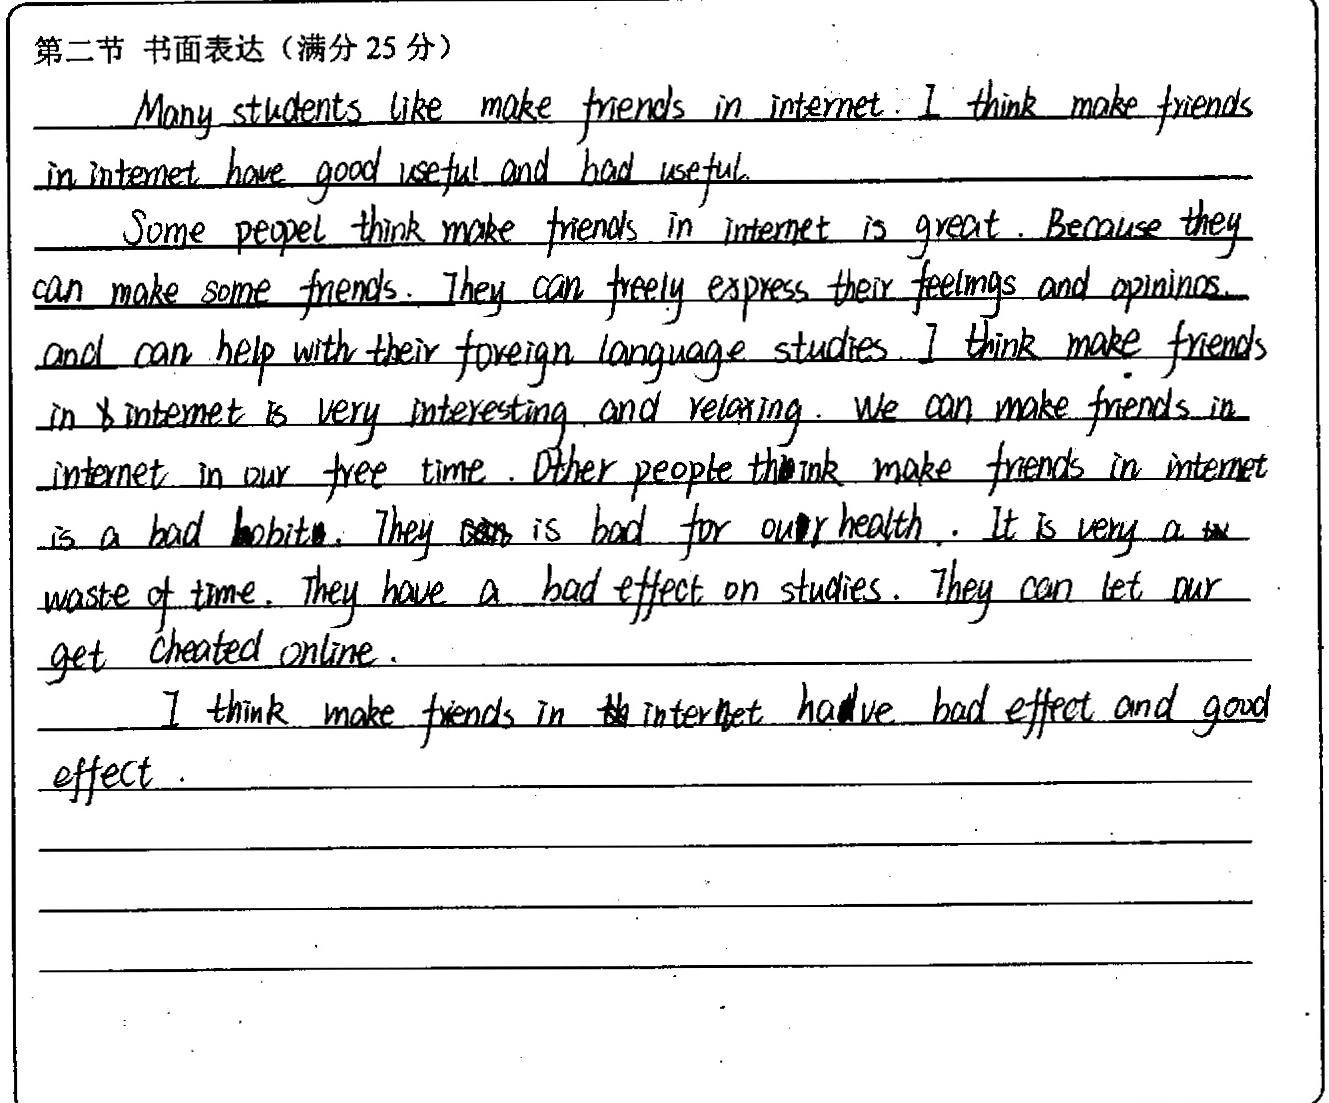 第二节 书面表达（满分 25 分）
Many students like make friends in internet. I think make friends
in internet have good useful and bad useful.
Some peopel think make friends in internet is great. Because they
can make some friends. They can freely express their feelings and opininos.
and can help with their foreign language studies I think make friends
in internet is very interesting and relaxing. We can make friends in
internet in our free time. Other people think make friends in internet
is a bad habit. They is bad for our health. It is very a
waste of time. They have a bad effect on studies. They can let our
get cheated online.
I think make friends in internet have bad effect and good
effect.